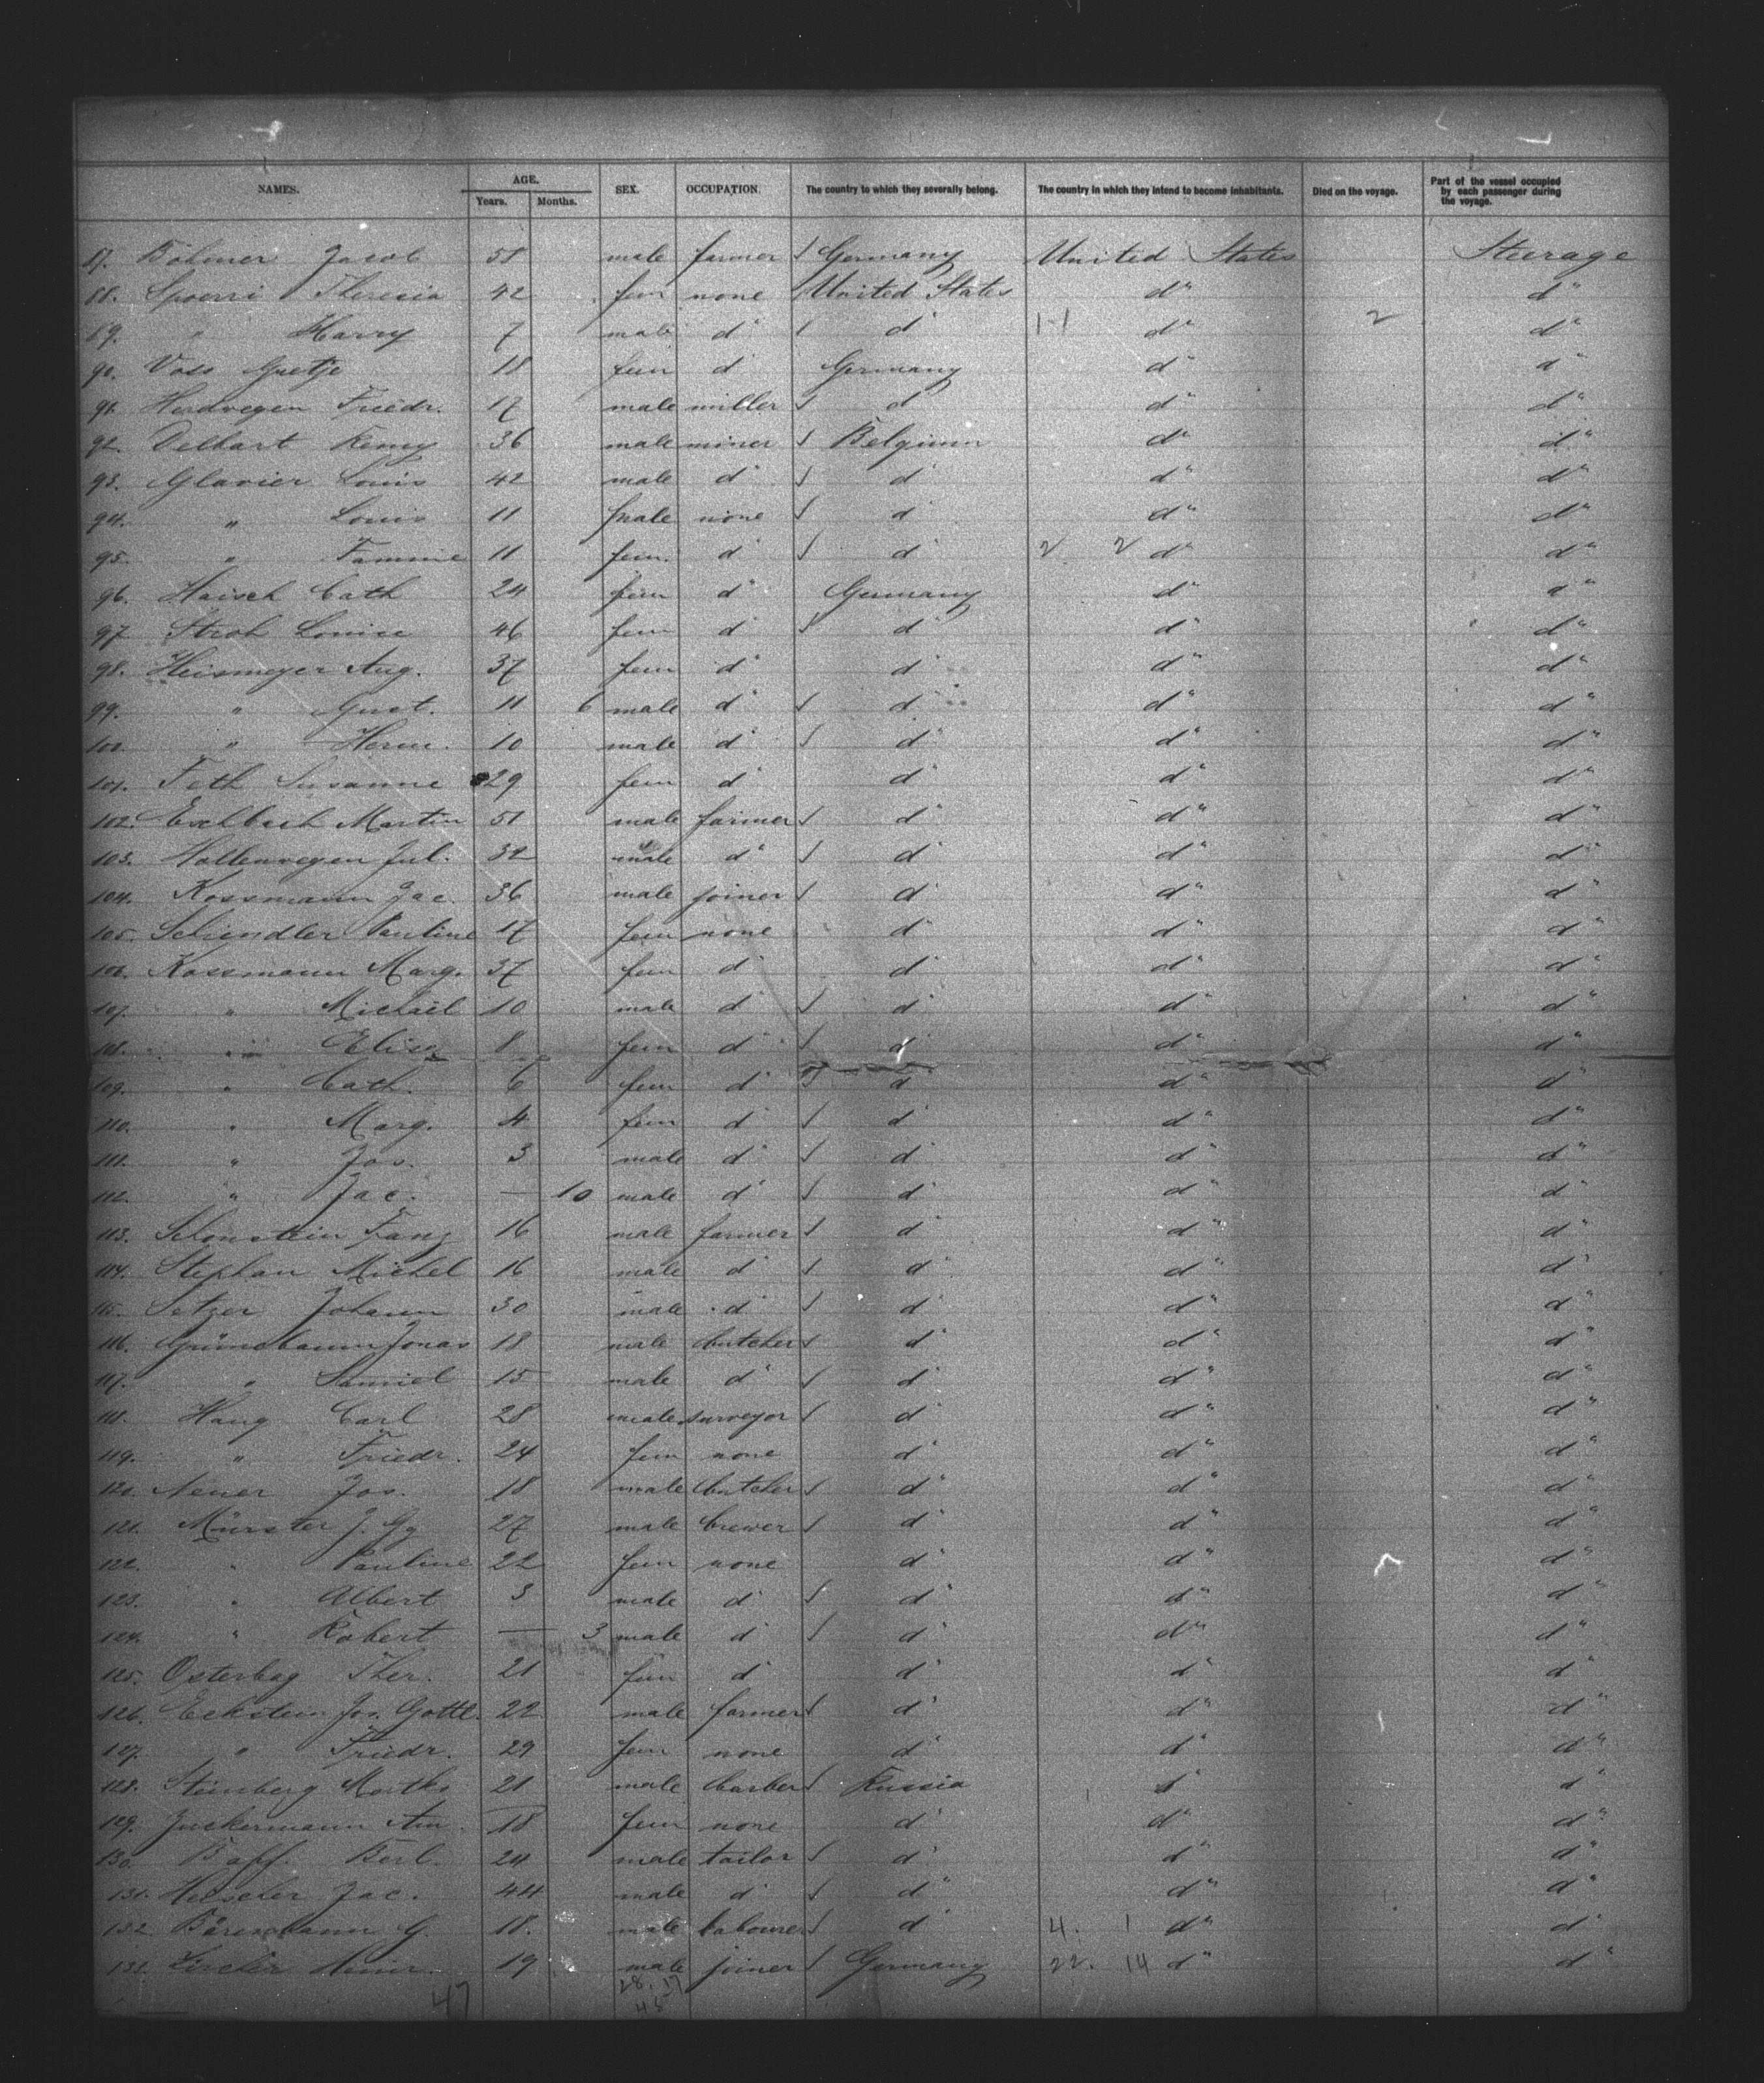 NAMES. AGE. Years. Months. SEX. OCCUPATION. The country to which they severally belong. The country in which they intend to become inhabitants. Died on the voyage. Part of the vessel occupied by each passenger during the voyage.
87. Böhmer Jacob 58 male farmer / Germany United States Steerage
88. Spoerri Theresia 42 fem none / United States d° d°
89. " Harry 7 male d° / d° 1-1 d° 2 d°
90. Voss Gretje 18 fem d° Germany d° d°
91. Friedr. 17 male miller / d° d° d°
92. Delhart Remy 36 male miner / Belgium d° d°
93. Glavier Louis 42 male d° / d° d° d°
94. " Louis 11 male none / d° d° d°
95. " 11 fem. d° / d° 2 2 d° d°
96. Haisch Cath 24 fem d° Germany d° d°
97. Stroh Louise 46 fem d° / d° d° d°
98. Heismeyer Aug. 37 fem d° d° d° d°
99. " Gust. 11 6 male d° / d° d° d°
100. " Herm. 10 male d° / d° d° d°
101. Feth Susanne 29 fem d° d° d° d°
102. Eschbach Martin 51 male farmer / d° d° d°
103. Hollenwegen Jul. 32 male d° / d° d° d°
104. Kossmann Jac. 36 male joiner / d° d° d°
105. Schindler Pauline 17 fem none d° d° d°
106. Kossmann Marg. 37 fem d° d° d° d°
107. " Michael 10 male d° / d° d° d°
108. " Elise 8 fem d° / d° d° d°
109. " Cath. 6 fem d° / d° d° d°
110. " Marg. 4 fem d° / d° d° d°
111. " Jos. 3 male d° / d° d° d°
112. " Jac. — 10 male d° / d° d° d°
113. Schonstein Franz 16 male farmer / d° d° d°
114. Stephan Michel 16 male d° / d° d° d°
115. Setzer Johann 30 male d° / d° d° d°
116. Grünebaum Jonas 18 male butcher / d° d° d°
117. " Samiel 15 male d° / d° d° d°
118. Haug Carl 28 male surveyor / d° d° d°
119. " Friedr. 24 fem none d° d° d°
120. Neuer Jos. 18 male butcher / d° d° d°
121. Münster J. Gg 27 male brewer / d° d° d°
122. " Pauline 22 fem none d° d° d°
123. " Albert 3 male d° / d° d° d°
124. " Robert — 3 male d° / d° d° d°
125. Osterbag Ther. 21 fem d° d° d° d°
126. Eckstein Jos. Gottl. 22 male farmer / d° d° d°
127. " Friedr. 29 fem none d° d° d°
128. Steinberg 21 male barber / Russia d° d°
129. Juckermann 18 fem none d° d° d°
130. Baff Berl. 24 male tailor / d° d° d°
131. Heischer Jac. 44 male d° / d° d° d°
132. G. 18. male labourer / d° 4. 1 d° d°
133. 19 male joiner / Germany 22. 14 d° d°
47 28. 17
45